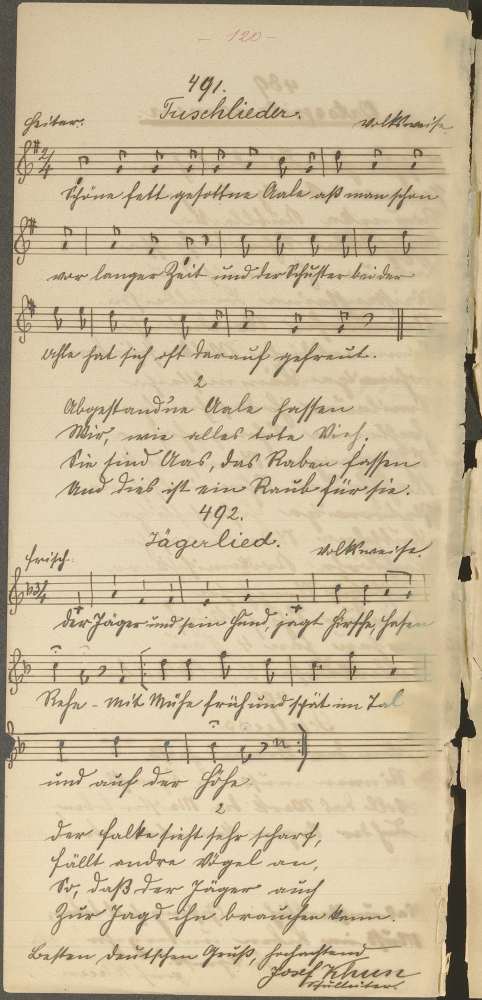 - 120 -
491.
Tuschlieder.
Heiter. Volksweise
Schöne fett gesottne Aale aß man schon
vor langer Zeit und der Schuster bei der
Ahle hat sich oft darauf gefreut.
2
Abgestand'ne Aale hassen
Wir, wie alles tote Vieh.
Sie sind Aas, das Raben fassen
Und dies ist ein Raub für sie.
492.
Jägerlied.
Frisch. Volksweise.
Der Jäger und sein Hund, jagt Hirsche, Hasen
Rehe - mit Mühe früh und spät im Tal
und auf der Höhe.
2
Der Falke sieht sehr scharf,
Fällt andre Vögel an,
So, daß der Jäger auch
Zur Jagd ihn brauchen kann.
Besten deutschen Gruß, hochachtend
Josef
Schulleiter.